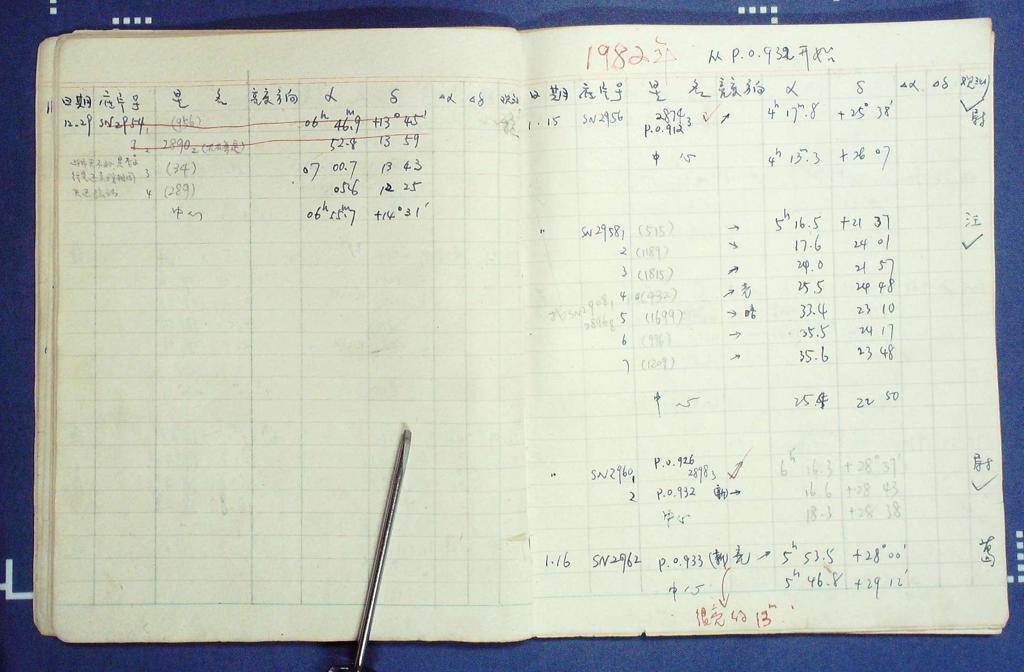 日期 底片号 星名 亮度方向 α δ Δα Δδ 观测
12.29 SN2954₁ (956) 06ʰ 46.9ᵐ +13° 45'
2 2890₂ 52.8 13 59
3 (34) 07 00.7 13 43
4 (289) 05.6 12 25
中心 06ʰ 55.7ᵐ +14° 31'
1982年 从 P.O.932 开始
日期 底片号 星名 亮度方向 α δ Δα Δδ 观测
1.15 SN2956 2874 ✓ ↗ 4ʰ 17ᵐ.8 +25° 38' 尉
P.O.912
中心 4ʰ 13ᵐ.3 +26 07
" SN2958₁ (515) → 5ʰ 16.5 +21 37 汪
2 (1189) 17.6 24 01 ✓
3 (1815) 24.0 21 57
4 (432) ↗ 亮 25.5 24 48
5 (1699) → 暗 33.4 23 10
6 (996) → 35.5 24 17
7 (1209) 35.6 23 48
中心 25.4 22 50
" SN2960₁ P.O.926 2898₃ ✓ 6ʰ 16.3 +28° 37' 尉
2 P.O.932 → 16.6 +28 43 ✓
中心 18.3 +28 38
1.16 SN2962 P.O.933 (新亮 ↗ 5ʰ 53.5 +28° 00' 葛
中心 5ʰ 46.8 +29 12'
很亮的 13ᵐ